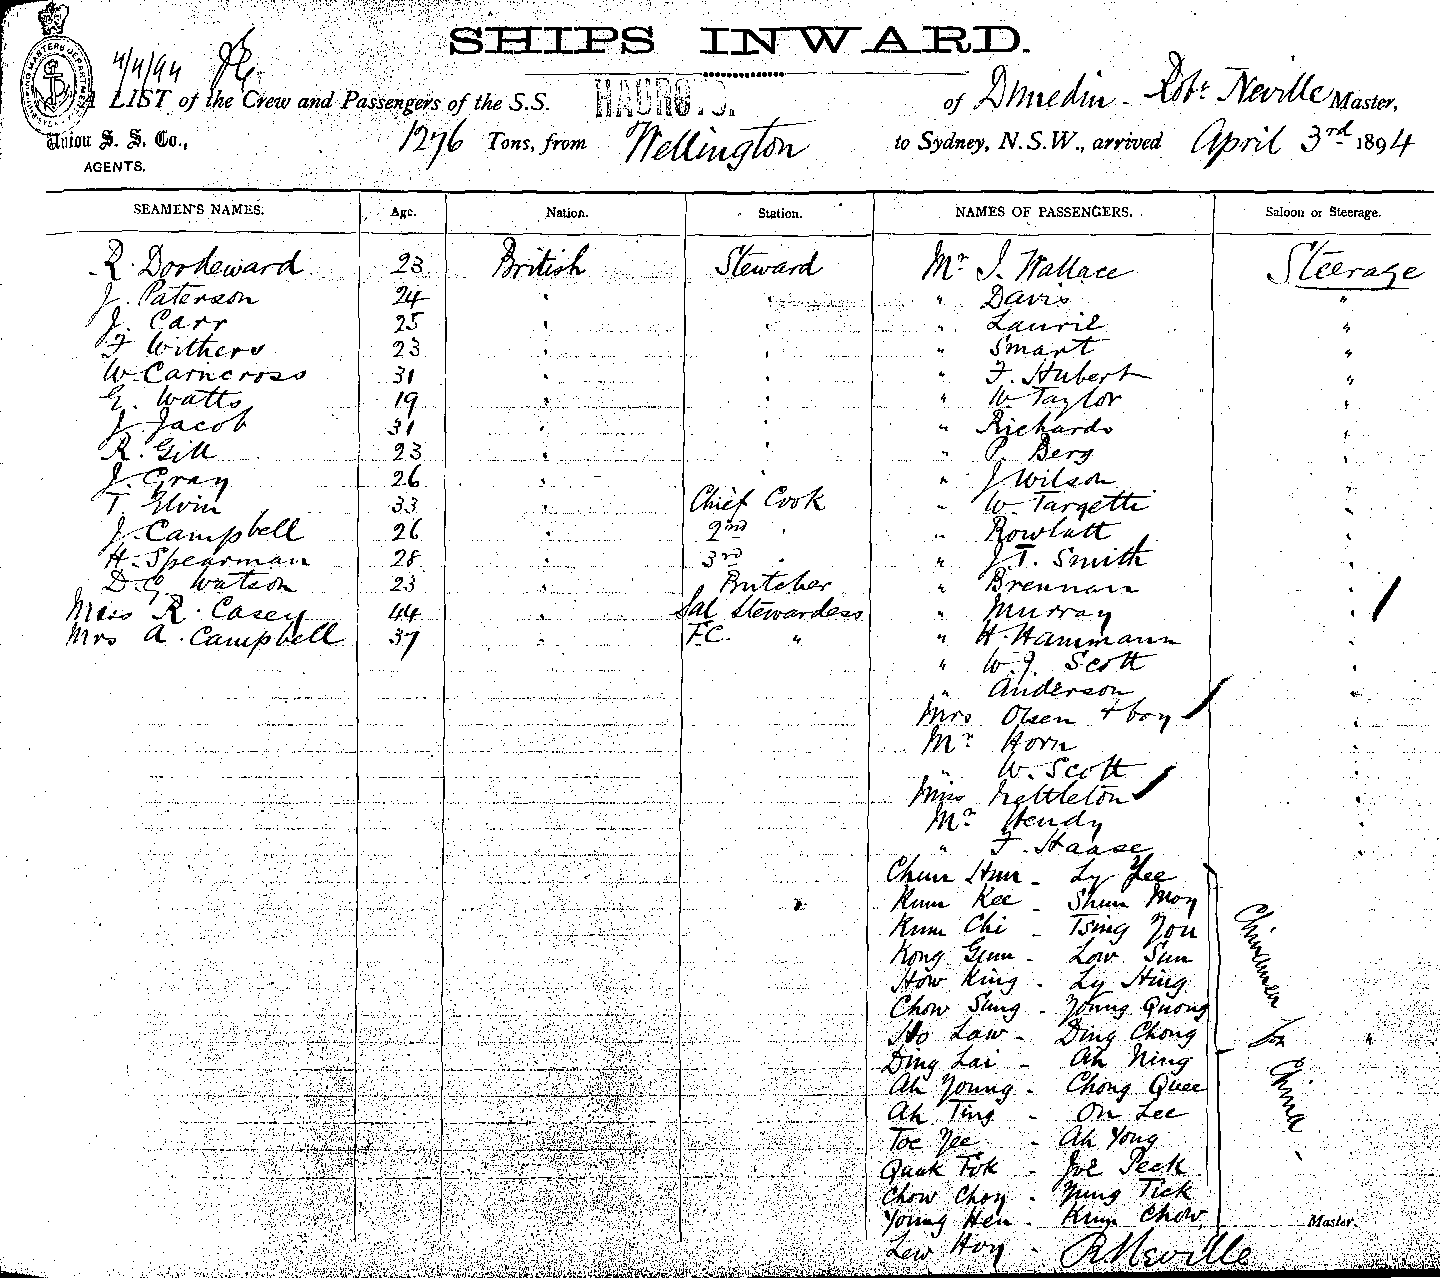 SHIPS INWARD.
4/4/94
A LIST of the Crew and Passengers of the S.S. HAUROTO. of Dunedin - Robt Neville Master,
Union S. S. Co., 1276 Tons, from Wellington to Sydney, N.S.W., arrived April 3rd 1894
AGENTS.
SEAMEN'S NAMES. Age. Nation. Station. NAMES OF PASSENGERS. Saloon or Steerage.
R. Dooheward 23 British Steward Mr J. Wallace Steerage
J. Paterson 24 " " " Davis "
J. Carr 25 " " " Laurie "
F Withers 23 " " " Smart "
W Carncross 31 " " " F. Hubert "
G. Watts 19 " " " W Taylor "
J. Jacob 31 " " " Richards "
R. Gill 23 " " " P. Berg "
J. Gray 26 " " " J Wilson "
T. Elvin 33 " Chief Cook " W. Targetti "
J. Campbell 26 " 2nd " " Rowlatt "
H. Spearman 28 " 3rd " " J. T. Smith "
D. G. Watson 23 " Butcher " Brennan "
Miss R. Casey 44 " Sal Stewardess " Murray "
Mrs A. Campbell 37 " F.C. " " H. Hammann "
" W. J. Scott "
" Anderson "
Mrs Olsen + boy "
Mr Horn "
" W. Scott "
Miss Nettleton "
Mr Hendy "
" F. Haase "
Chun Hun - Ly Yee
Kum Kee - Shum Moy
Kum Chi - Tsing You
Kong Gum - Low Sun
How King - Ly Hing
Chow Sang - Young Quong
Ho Law - Ding Chong
Ding Lai - Ah Ning
Ah Young - Chong Quee
Ah Ting - On Lee
Toe Yee - Ah Yong
Quak Fok - Joe Peck
Chow Choy - Yung Tick
Young Hen - Kum Chow
Lew Hoy -
Chinamen for China "
Master.
R Neville